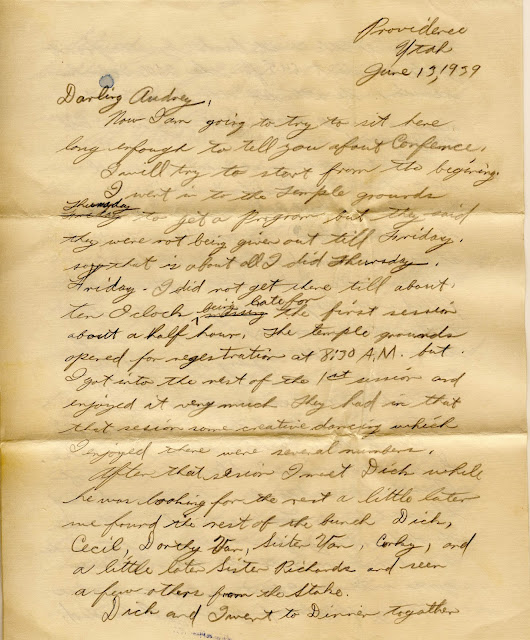 Providence
Utah
June 13, 1939
Darling Audrey,
Now I am going to try to sit here
long enough to tell you about Confence.
I will try to start from the begining.
I went in to the temple grounds
Thursday
Friday to get a prigrom but they said
they were not being given out till Friday.
so that is about all I did Thursday.
Friday - I did not get there till about
ten O clock being late for missing the first session
about a half hour. The temple grounds
opened for regestration at 8:30 A.M. but
I got into the rest of the 1st session and
enjoyed it very much They had in that
that sesion some creative dancing which
I enjoyed there were several numbers.
After that sesion I meet Dick while
he was looking for the rest a little later
we found the rest of the bunch Dick,
Cecil, Dorthy Van, Sister Van, Corky, and
a little later Sister Richards and seen
a few others from the Stake.
Dick and I went to Dinner togather